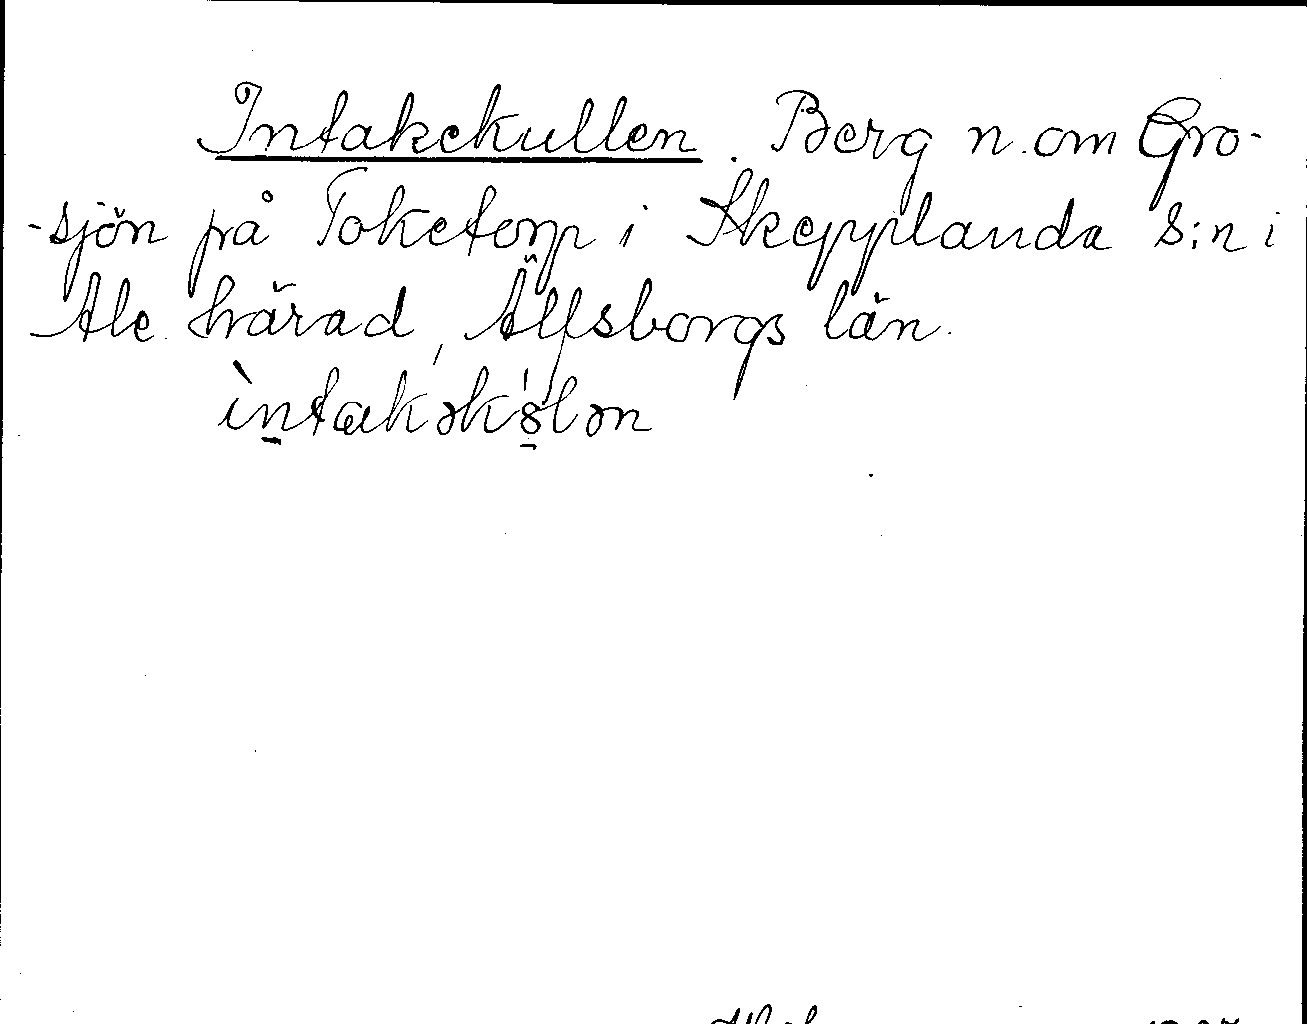 Intakekullen. Berg n. om Gro-
-sjön på Toketorp i Skepplanda s:n i
Ale härad, Älfsborgs län.
ìntakəkǿlən